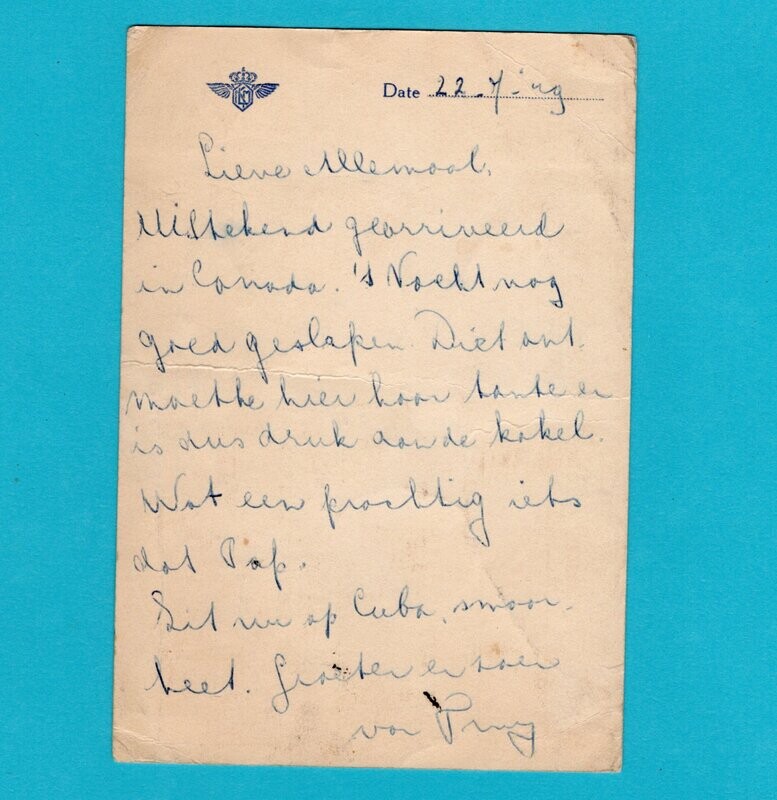 KLM
Date 22-7-'49
Lieve Allemaal,
Uitstekend gearriveerd
in Canada. 's Nacht nog
goed geslapen. Diet ont-
moette hier haar tante en
is dus druk aan de kakel.
Wat een prachtig iets
dat Pap.
Zit nu op Cuba, smoor-
heet. Groeten en zoen
van